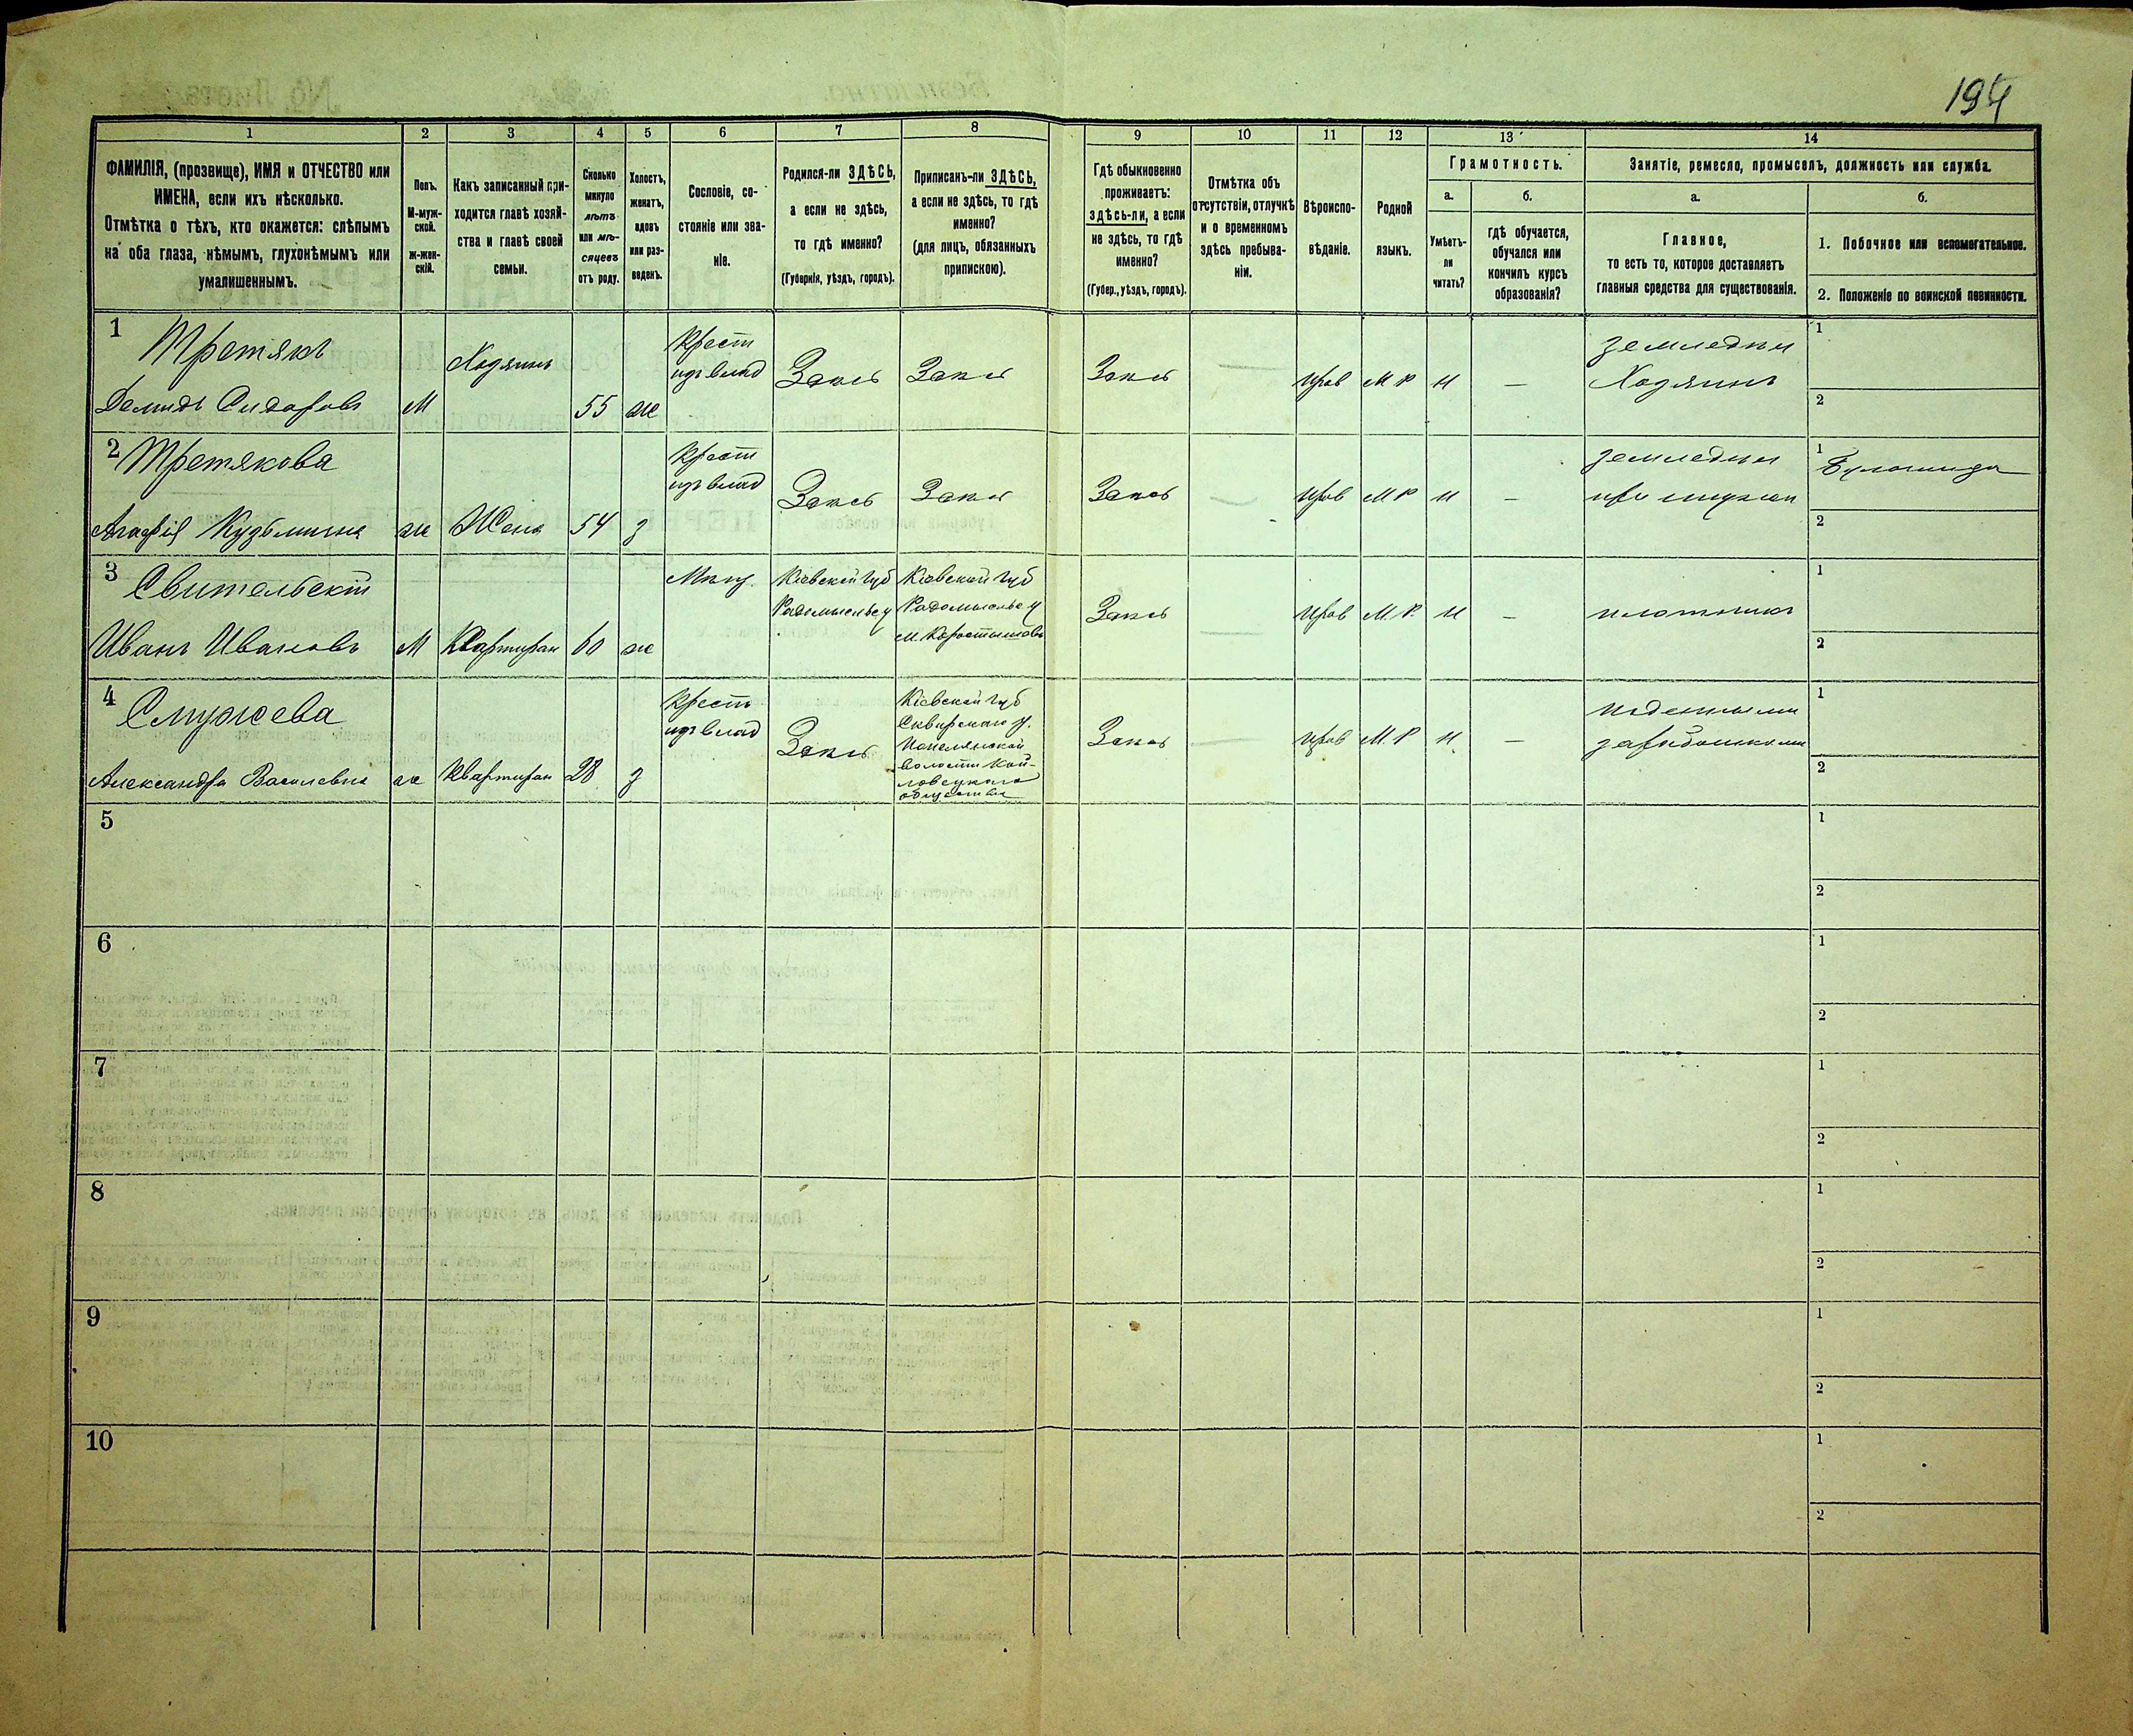 194
1 2 3 4 5 6 7 8 9 10 11 12 13 14
ФАМИЛІЯ, (прозвище), ИМЯ и ОТЧЕСТВО или
ИМЕНА, если ихъ нѣсколько.
Отмѣтка о тѣхъ, кто окажется: слѣпымъ
на оба глаза, нѣмымъ, глухонѣмымъ или
умалишеннымъ.
Полъ.
М-муж-
ской.
ж-жен-
скій.
Какъ записанный при-
ходится главѣ хозяй-
ства и главѣ своей
семьи.
Сколько
минуло
лѣтъ
или мѣ-
сяцевъ
отъ роду.
Холостъ,
женатъ,
вдовъ
или раз-
веденъ.
Сословіе, со-
стояніе или зва-
ніе.
Родился-ли ЗДѢСЬ,
а если не здѣсь,
то гдѣ именно?
(Губернія, уѣздъ, городъ).
Приписанъ-ли ЗДѢСЬ,
а если не здѣсь, то гдѣ
именно?
(для лицъ, обязанныхъ
припискою).
Гдѣ обыкновенно
проживаетъ:
здѣсь-ли, а если
не здѣсь, то гдѣ
именно?
(Губер., уѣздъ, городъ).
Отмѣтка объ
отсутствіи, отлучкѣ
и о временномъ
здѣсь пребыва-
ніи.
Вѣроиспо-
вѣданіе.
Родной
языкъ.
Грамотность.
а.
Умѣетъ-
ли
читать?
б.
гдѣ обучается,
обучался или
кончилъ курсъ
образованія?
Занятіе, ремесло, промыселъ, должность или служба.
а.
Главное,
то есть то, которое доставляетъ
главныя средства для существованія.
б.
1. Побочное или вспомогательное.
2. Положеніе по воинской повинности.
1
Третякъ
Демидъ Сидоровъ
М
Хозяинъ
55
ж
Крест
изъ влад
прав
М Р
н
—
земледѣл
Хозяинъ
1
2
2
Третякова
Агафія Кузьмина
ж
Жена
54
з
Крест
изъ влад
прав
М Р
н
—
земледѣл
при мужѣ
1
2
3
Свительскій
Иванъ Ивановъ
М
Квартиран
60
ж
Мѣщ.
Кіевской губ
Радомысльс у
Кіевской губ
Радомысльс у
м. Коростышовъ
прав
М. Р.
н
—
плотникъ
1
2
4
Александра Василевна
ж
Квартиран
28
з
Крест
изъ влад
Кіевской губ
Сквирскаго у.
волости
общества
прав
М. Р
н
—
поденными
заработками
1
2
5
1
2
6
1
2
7
1
2
8
1
2
9
1
2
10
1
2